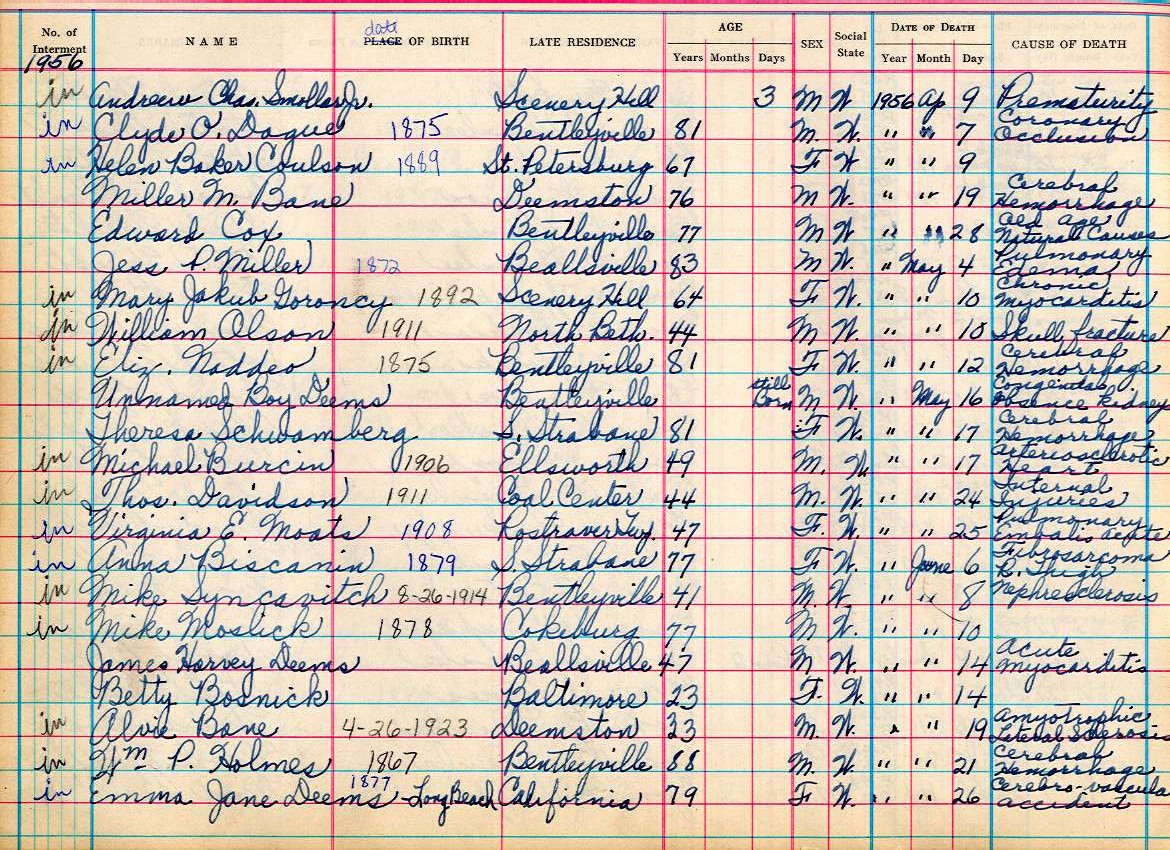 No. of Interment NAME date PLACE OF BIRTH LATE RESIDENCE AGE Years Months Days SEX Social State DATE OF DEATH Year Month Day CAUSE OF DEATH
1956
in Andrew Chas. Smollar Jr. Scenery Hill 3 M W 1956 Ap 9 Prematurity
in Clyde O. Dague 1875 Bentleyville 81 M W. " " 7 Coronary Occlusion
in Helen Baker Coulson 1889 St. Petersburg 67 F W " " 9
Miller M. Bane Deemston 76 M W. " " 19 Cerebral Hemorrhage
Edward Cox Bentleyville 77 M W. " " 28 Old Age Natural Causes
Jess P. Miller 1872 Beallsville 83 M W. " May 4 Pulmonary Edema
in Mary Jakub Goroncy 1892 Scenery Hill 64 F W. " " 10 Chronic Myocarditis
in William Olson 1911 North Beth. 44 M W. " " 10 Skull fracture
in Eliz. Noddeo 1875 Bentleyville 81 F W. " " 12 Cerebral Hemorrhage
Unnamed Boy Deems Bentleyville still Born M W. " May 16 Congenital absence kidney
Theresa Schwamberg S. Strabane 81 F W. " " 17 Cerebral Hemorrhage
in Michael Burcin 1906 Ellsworth 49 M. W. " " 17 Arteriosclerotic Heart
in Thos. Davidson 1911 Coal Center 44 M. W. " " 24 Internal Injuries
in Virginia E. Moats 1908 Rostraver Twp. 47 F. W. " " 25 Pulmonary Embolis acute
in Anna Biscanin 1879 S. Strabane 77 F W. " June 6 Fibrosarcoma R. Thigh
in Mike Syncavitch 8-26-1914 Bentleyville 41 M. W. " " 8 Nephrosclerosis
in Mike Moslick 1878 Cokeburg 77 M W. " " 10
James Harvey Deems Beallsville 47 M W. " " 14 Acute Myocarditis
Betty Bosnick Baltimore 23 F. W. " " 14
in Alvie Bane 4-26-1923 Deemston 33 M. W. " " 19 Amyotrophic Lateral Sclerosis
in Wm P. Holmes 1867 Bentleyville 88 M. W. " " 21 Cerebral Hemorrhage
in Emma Jane Deems 1877 Long Beach California 79 F W. " " 26 Cerebro-vascular accident